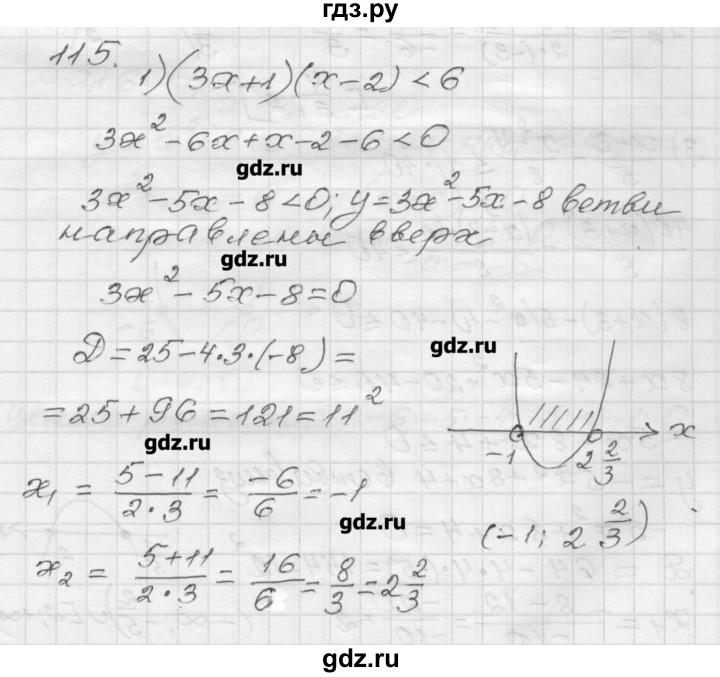 гдз.ру
115.
1) (3x+1)(x-2)<6
3x²-6x+x-2-6<0
gdz.ru
3x²-5x-8<0; y=3x²-5x-8 ветви
направлены вверх
gdz.ru
3x²-5x-8=0
Д=25-4·3·(-8)=
gdz.ru
=25+96=121=11²
gdz.ru
x
-1
2 2/3
x₁ = (5-11)/(2·3) = (-6)/6 = -1
gdz.ru
(-1; 2 2/3)
x₂ = (5+11)/(2·3) = 16/6 = 8/3 = 2 2/3
gdz.ru